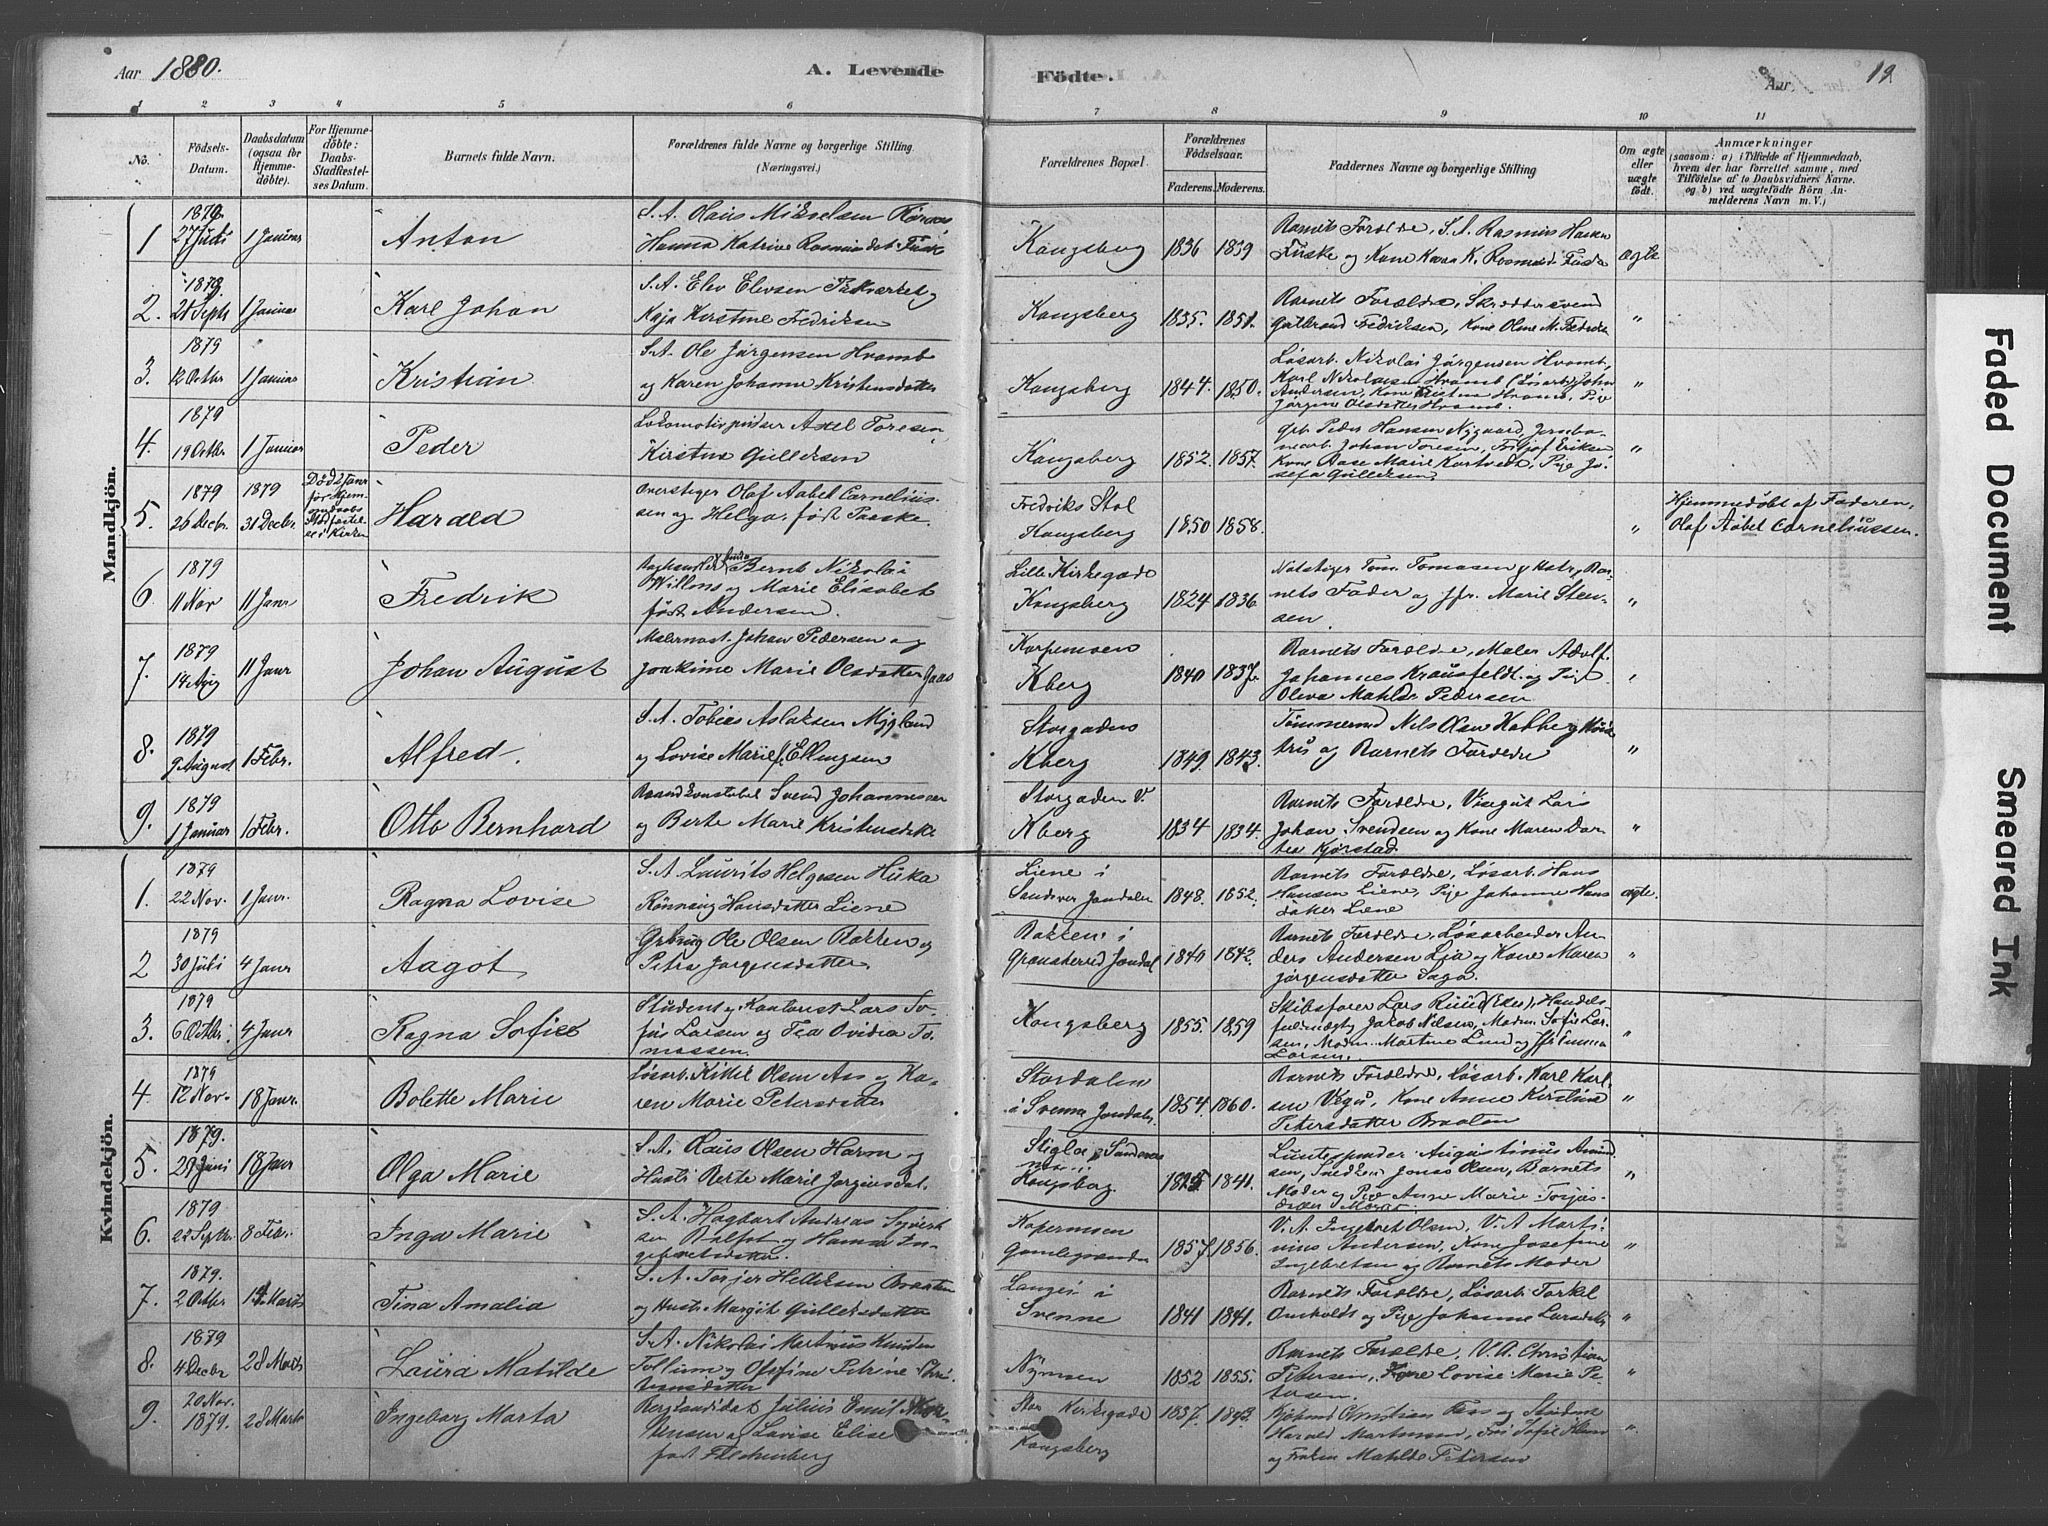 Aar 1880.
A. Levende
Födte.
Aar
19
1 2 3 4 5 6 7 8 9 10 11
No.
Födsels-Datum.
Daabsdatum (ogsaa for Hjemme-döbte).
For Hjemme-döbte: Daabs-Stadfæstel-ses Datum.
Barnets fulde Navn.
Forældrenes fulde Navne og borgerlige Stilling (Næringsvei.)
Forældrenes Bopæl.
Forældrenes Födselsaar.
Faderens. Moderens.
Faddernes Navne og borgerlige Stilling
Om ægte eller uægte födt.
Anmærkninger
(saasom: a) i Tilfælde af Hjemmedaab,
hvem der har forrettet samme, med
Tilföielse af to Daabsvidners Navne.
og b) ved uægtefödte Börn An-
melderens Navn m. V.)
Mandkjön.
1 1879 27 Juli 1 Januar Anton S. A. Hans Mikkelsen
Hanna Katrine Rasmusdat. Fuske Kongsberg 1836 1839 Barnets Forældre, S. A. Rasmus Hansen
Fuske og Kone Karen K. Rasmusd. Fuske ægte
2. 1879 28 Septb 1 Januar Karl Johan S. A. Elev Elevsen
Kaja Kirstine Fredriksen Kongsberg 1835. 1851. Barnets Forældre, Skræddersvend
Gulbrand Fredriksen, Kone Oline M. Fredriks
3. 1879 12 Octbr 1 Januar Kristian S. A. Ole Jörgensen Hvamb
og Karen Johanne Kristensdatter Kongsberg 1844. 1850. Lösarb. Nikolai Jörgensen Hvamb,
Karl Nikolaisen Hvamb (Lösarb) John
Andersen, Kone Kristine Hvamb, Pige
Jörgine Olsdatter Hvamb.
4. 1879 19 Octbr 1 Januar Peder Lokomotivpudser Axel Toresen
Kirstine Gulliksen Kongsberg 1852. 1857. Grb. Peder Hansen Nygaard, Jernba-
nearb. Johan Toresen, Fritjof Eriksen
Kone Aase Marie Kortvedt, Pige Jo-
sefa Gulliksen
5. 1879 26 Decbr. 1879 31 Decbr. Död 2 Janr
för Hjem-
medaabs
Stadfæstel-
se i Kirken Harald Overstiger Olaf Aabel Cornelius-
sen og Helga, födt Paaske. Fredriks Stol
Kongsberg 1850 1858. Hjemmedöbt af Faderen,
Olaf Aabel Corneliussen.
6 1879 11 Nov 11 Janr Fredrik Bernt Nikolai
Willons og Marie Elisabet
födt Andersen. Lille Kirkegade
Kongsberg 1824 1836 Natstiger Tom. Tomasen og Hstr., Bar-
nets Fader og Jfr. Marie Steen-
sen.
7. 1879 14 Aug 11 Janr Johan August Malermest. Johan Pedersen og
Joakime Marie Olsdatter Kopermoen
Kberg 1840 1837. Barnets Forældre, Maler Adolf
Johannes Krausfeldt og Pige
Oleva Matilde Pedersen
8. 1879 9 August 1 Febr. Alfred. S. A. Tobias Aslaksen Mygland
og Lovise Marie f. Ellingsen Storgaden
Kberg 1849. 1843. Tömmermd Nils Olsen Habberg Hus-
tru og Barnets Forældre
9. 1879 1 Januar 1 Febr. Otto Bernhard Brandkonstabel Svend Johannessen
og Berte Marie Kristensdatter Storgaden V.
Kberg 1834 1834. Barnets Forældre, Visergut Lars
Johan Svendsen og Kone Maren Dor-
tea Kjörstad.
Kvindekjön.
1. 1879 22 Nov. 1 Janr. Ragna Lovise S. A. Laurits Helgesen Huka
Rönnaug Hansdatter Liene Liene i
Sandsver Jondalen 1848. 1852. Barnets Forældre, Lösarb. Hans
Hansen Liene, Pige Johanne Hans-
datter Liene ægte.
2 1879 30 Juli 4 Janr Aagot Grbrug. Ole Olsen Bakken og
Petra Jörgensdatter Bakken i
Gransherred Jondal 1840 1842. Barnets Forældre, Lösarbeider An-
ders Andersen Lia og Kone Maren
Jörgensdatter Saga.
3. 1879 6 Octbr 4 Janr Ragna Sofie Student og Kontorist Lars So-
fus Larsen og Tea Ovidia To-
massen. Kongsberg 1855. 1859 Skibsförer Lars Ruud (Eker), Handels
fuldmægtig Jakob Nilsen, Madm. Sofie Lar-
sen, Madm. Martine Lund og Jfr. Emma
Larsen.
4. 1879 12 Nov. 18 Janr. Bolette Marie Lösarb. Kittil Olsen Aas og Ka-
ren Marie Petersdatter Stordalen
i Svenne Jondalen 1854. 1860. Barnets Forældre, Lösarb. Karl Karl-
sen Vegu, Kone Anne Kirstine
Petersdatter Braaten
5. 1879. 29 Juni 18 Janr Olga Marie S. A. Claus Olsen Harm og
Hustr. Berte Marie Jörgensdat.
Kongsberg. 1825 1841. Luntespinder Augustinus Amund-
sen, Snedker Jonas Olsen, Barnets
Moder og Pige Anne Marie Torjus-
datter Moen.
6. 1879 22 Septbr 8 Febr. Inga Marie S. A. Hagbart Andreas Syvert-
sen Balfot og Hanna In-
gebretsdatter. Kopermoen
Gamlegrænden 1857. 1856. V. A. Ingebret Olsen, V. A. Marti-
nius Andersen, Kone Josefine
Ingebretsen og Barnets Moder
7. 1879. 2 Octbr 14 Marts Tina Amalia S. A. Torjer Helliksen Braaten
og Hustr. Margit Gulleksdatter Langeri i
Svenne 1841 1841. Barnets Forældre, Lösarb. Torkel
Omholdt og Pige Johanne Larsdatter
8. 1879 4 Decbr 28 Marts Laura Matilde S. A. Nikolai Martinus Knudsen
Follum og Olefine Petrine Kri-
stiansdatter Nymoen 1852 1855. Barnets Forældre, V. A. Christian
Petersen, Kone Lovise Marie Pe-
tersen.
9. 20 Nov. 1879. 28 Marts Ingeborg Marta Bergkandidat Julius Emil
og Lovise Elise
födt Falchenberg Stor Kirkegade
Kongsberg 1837. 1843. Kjöbmd Christian Foss og Student
Harald Martinsen, Frk. Sofie
og Fröken Matilde Petersen
Faded Document
Smeared Ink